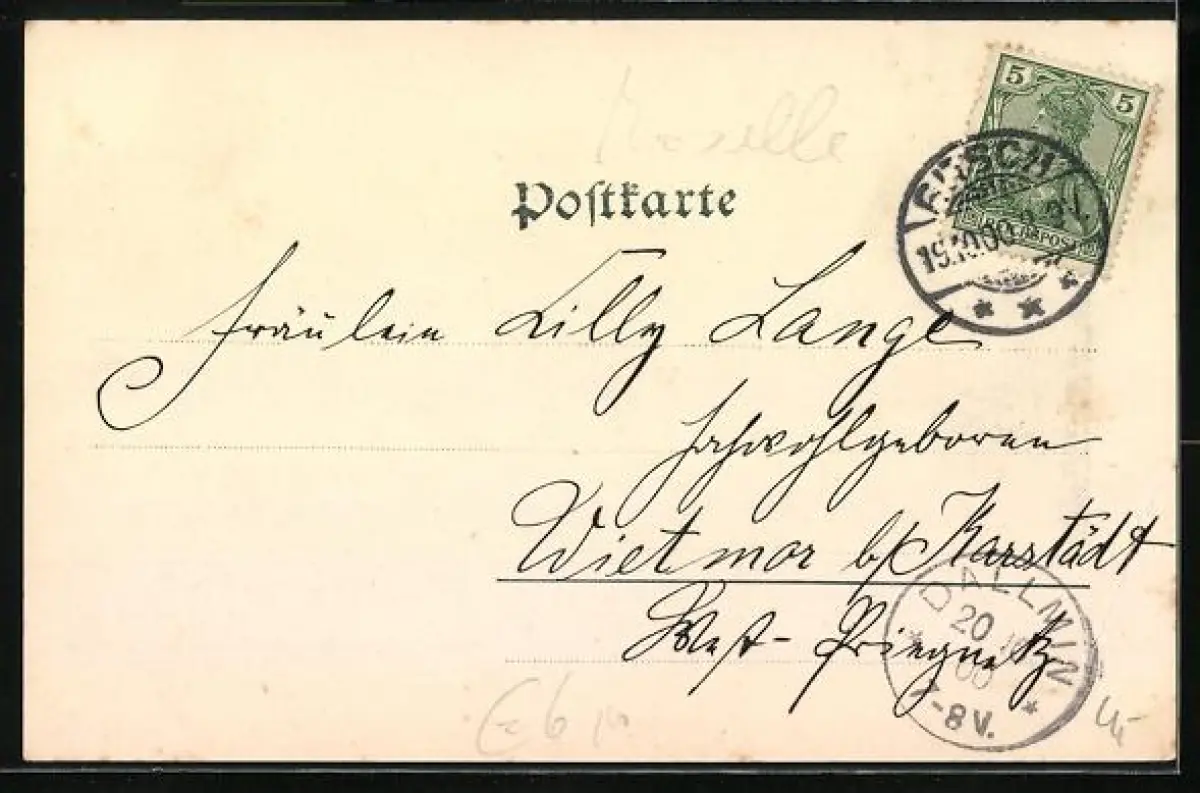 Moselle
Postkarte
5 5
REICHSPOST
19.10.00
Fräulein Lilly Lange
Hochwohlgeboren
Wietmor b/ Karstädt
West-Priegnitz
DALLMIN
20
00
7-8V.